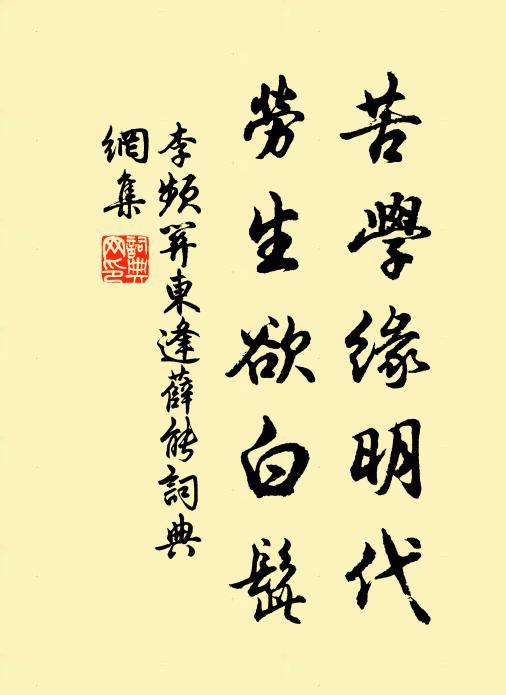 苦學緣明代
勞生欲白髭
李頻關東逢薛能詞典
網集
詞典
网印